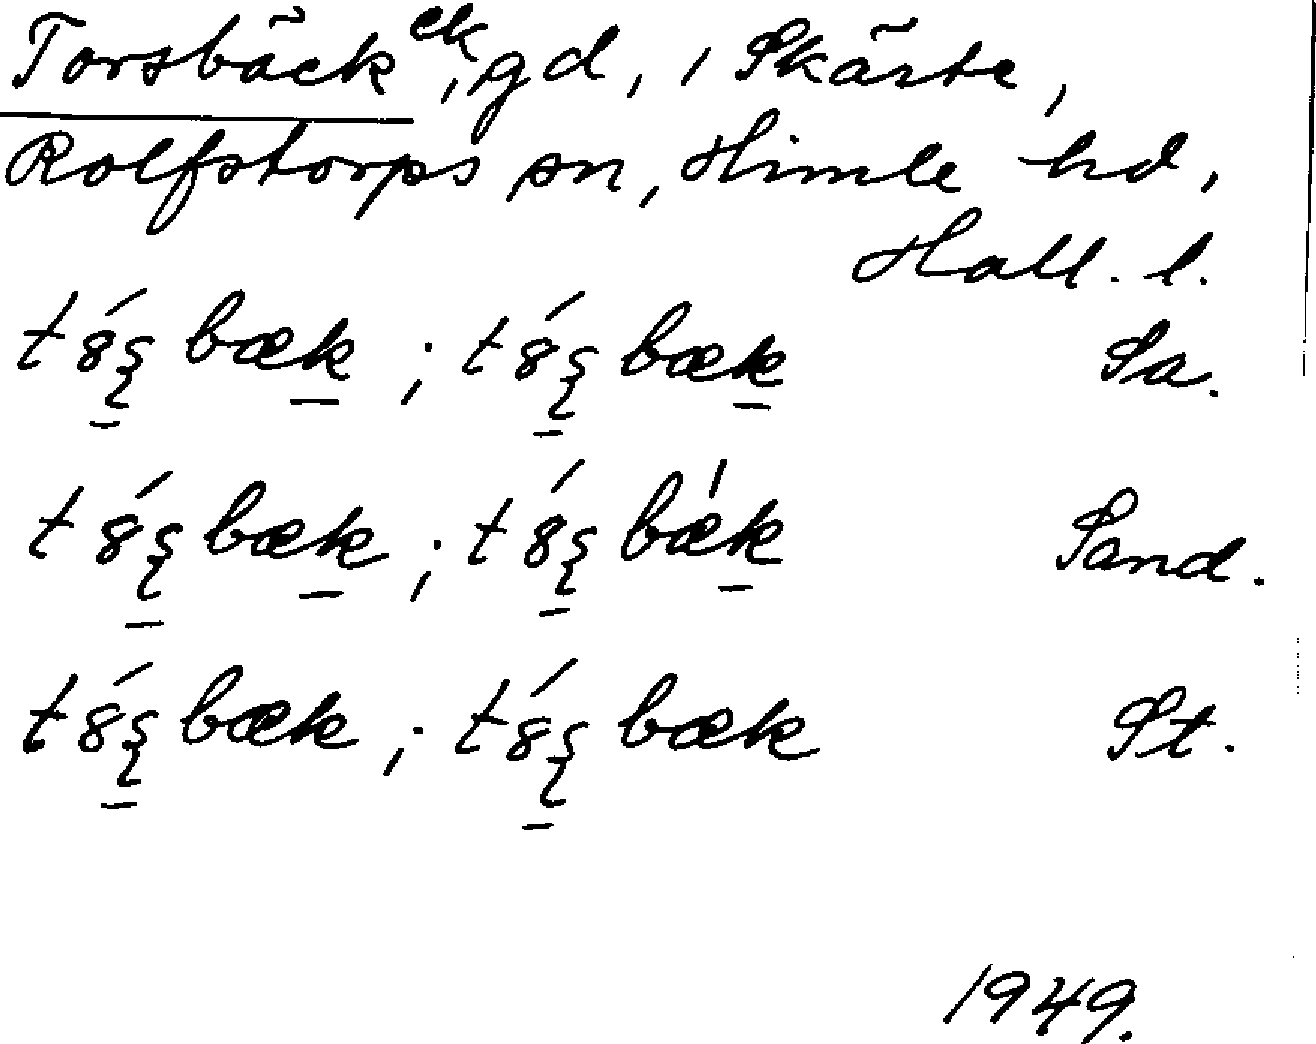 Torsbäck ek, gd, i Skärte,
Rolfstorps sn, Himle hd,
Hall. l.
t8́ʂbæk ; t8́ʂbæk Sa.
t8́ʂbæk ; t8́ʂbǽk Sand.
t8́ʂbæk ; t8́ʂbæk St.
1949.